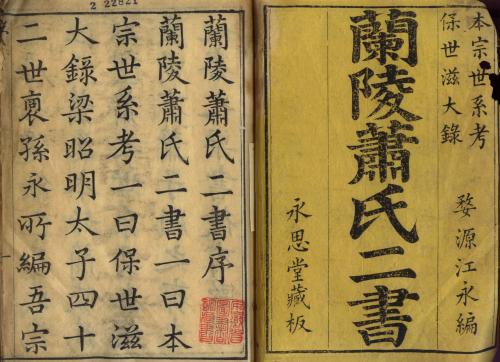 本宗世系考
保世滋大錄
婺源江永編
蘭陵蕭氏二書
永思堂藏板
蘭陵蕭氏二書序
蘭陵蕭氏二書一曰本
宗世系考一曰保世滋
大錄梁昭明太子四十
二世裔孫永所編吾宗
2 22821